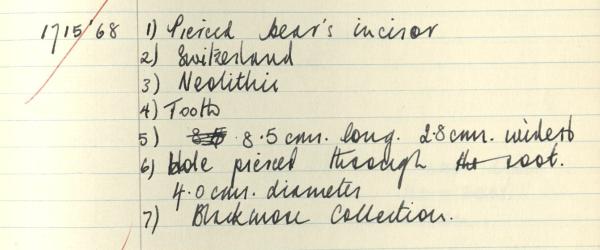 1715'68 1) Pierced bear's incisor
2) Switzerland
3) Neolithic
4) Tooth
5) 8.5 cms. long. 2.8 cms. widest
6) Hole pierced through the root.
4.0 cms. diameter
7) Blackmore Collection.